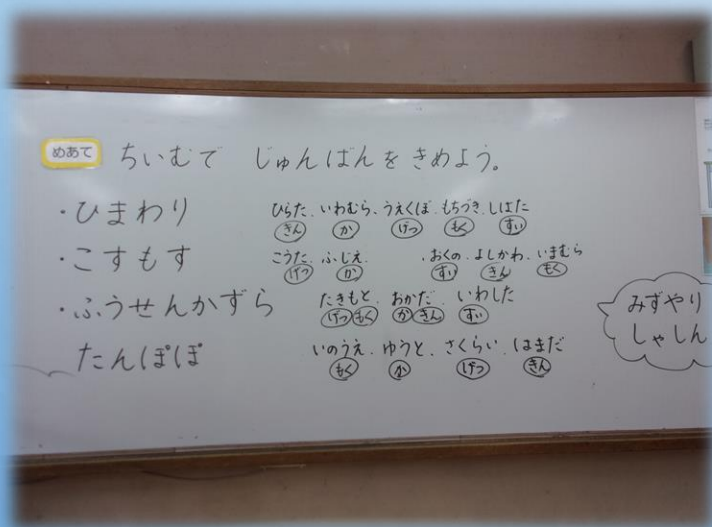 めあて ちいむで じゅんばんをきめよう。
・ひまわり ひらた、いわむら、うえくぼ、もちづき、しばた
きん か げつ もく すい
・こすもす こうた、ふじえ、おくの、よしかわ、いまむら
げつ か すい きん もく
・ふうせんかずら たきもと、おかだ、いわした
げつ もく か きん すい
たんぽぽ いのうえ、ゆうと、さくらい、はまだ
もく か げつ きん
みずやり
しゃしん